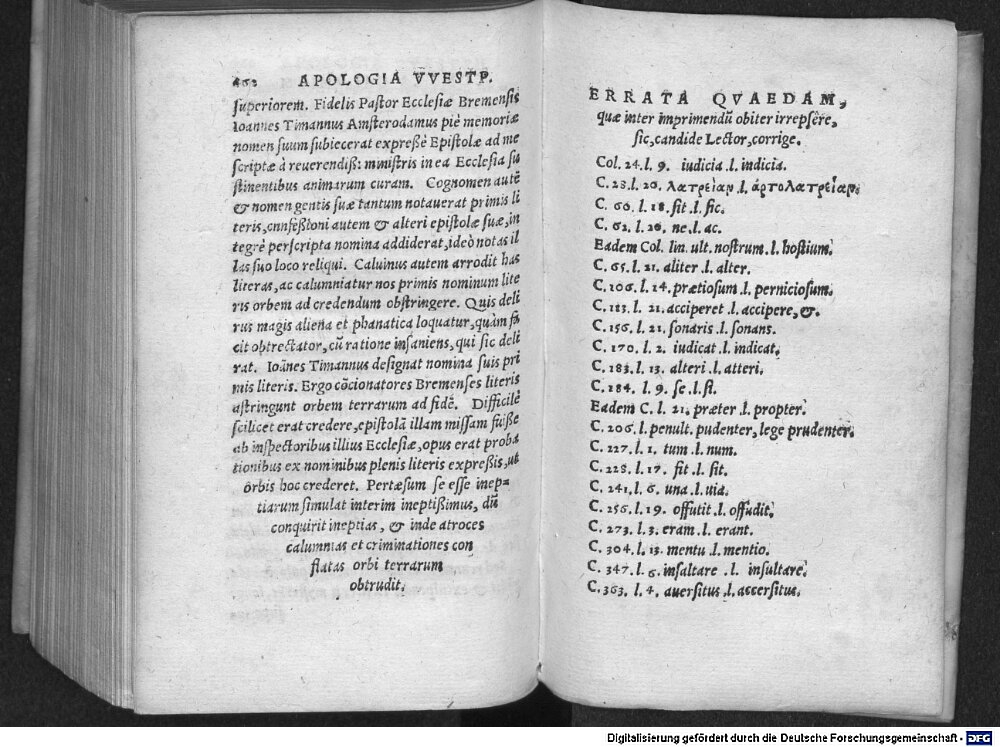 462 APOLOGIA VVESTP.
superiorem. Fidelis Pastor Ecclesiæ Bremensis
Ioannes Timannus Amsterodamus piè memoriæ
nomen suum subiecerat expreßè Epistolæ ad me
scriptæ à reuerendiß: ministris in ea Ecclesia su
stinentibus animarum curam. Cognomen autē
& nomen gentis suæ tantum notauerat primis li
teris, cnnfeßioni autem & alteri epistolæ suæ, in
tegrè perscripta nomina addiderat, ideò notas il
las suo loco reliqui. Caluinus autem arrodit has
literas, ac calumniatur nos primis nominum lite
ris orbem ad credendum obstringere. Quis deli
rus magis aliena et phanatica loquatur, quàm fa
cit obtrectator, cū ratione insaniens, qui sic deli
rat. Ioānes Timannus designat nomina suis pri
mis literis. Ergo cōcionatores Bremenses literis
astringunt orbem terrarum ad fidē. Difficilè
scilicet erat credere, epistolā illam missam fuiße
ab inspectoribus illius Ecclesiæ, opus erat proba
tionibus ex nominibus plenis literis expreßis, ut
orbis hoc crederet. Pertæsum se esse inep=
tiarum simulat interim ineptißimus, dū
conquirit ineptias, & inde atroces
calumnias et criminationes con
flatas orbi terrarum
obtrudit.
ERRATA QVAEDAM,
quæ inter imprimendū obiter irrepsêre,
sic, candide Lector, corrige.
Col. 24. l. 9. iudicia .l. indicia.
C. 28. l. 26. λατρείαν .l. ἀρτολατρείαν.
C. 60. l. 18. sit .l. sic.
C. 62. l. 26. ne .l. ac.
Eadem Col. lin. ult. nostrum .l. hostium.
C. 65. l. 21. aliter .l. alter.
C. 106. l. 14. prætiosum .l. perniciosum.
C. 113. l. 21. acciperet .l. accipere, &.
C. 156. l. 21. sonaris .l. sonans.
C. 170. l. 2. iudicat .l. indicat.
C. 183. l. 13. alteri .l. atteri.
C. 184. l. 9. se .l. si.
Eadem C. l. 21. præter .l. propter.
C. 206. l. penult. pudenter, lege prudenter.
C. 227. l. 1. tum .l. num.
C. 228. l. 17. fit .l. sit.
C. 241. l. 6. una .l. uia.
C. 256. l. 19. offutit .l. offudit.
C. 273. l. 3. eram .l. erant.
C. 304. l. 13. mentu .l. mentio.
C. 347. l. 6. insaltare .l. insultare.
C. 363. l. 4. auersitus .l. accersitus.
Digitalisierung gefördert durch die Deutsche Forschungsgemeinschaft - DFG